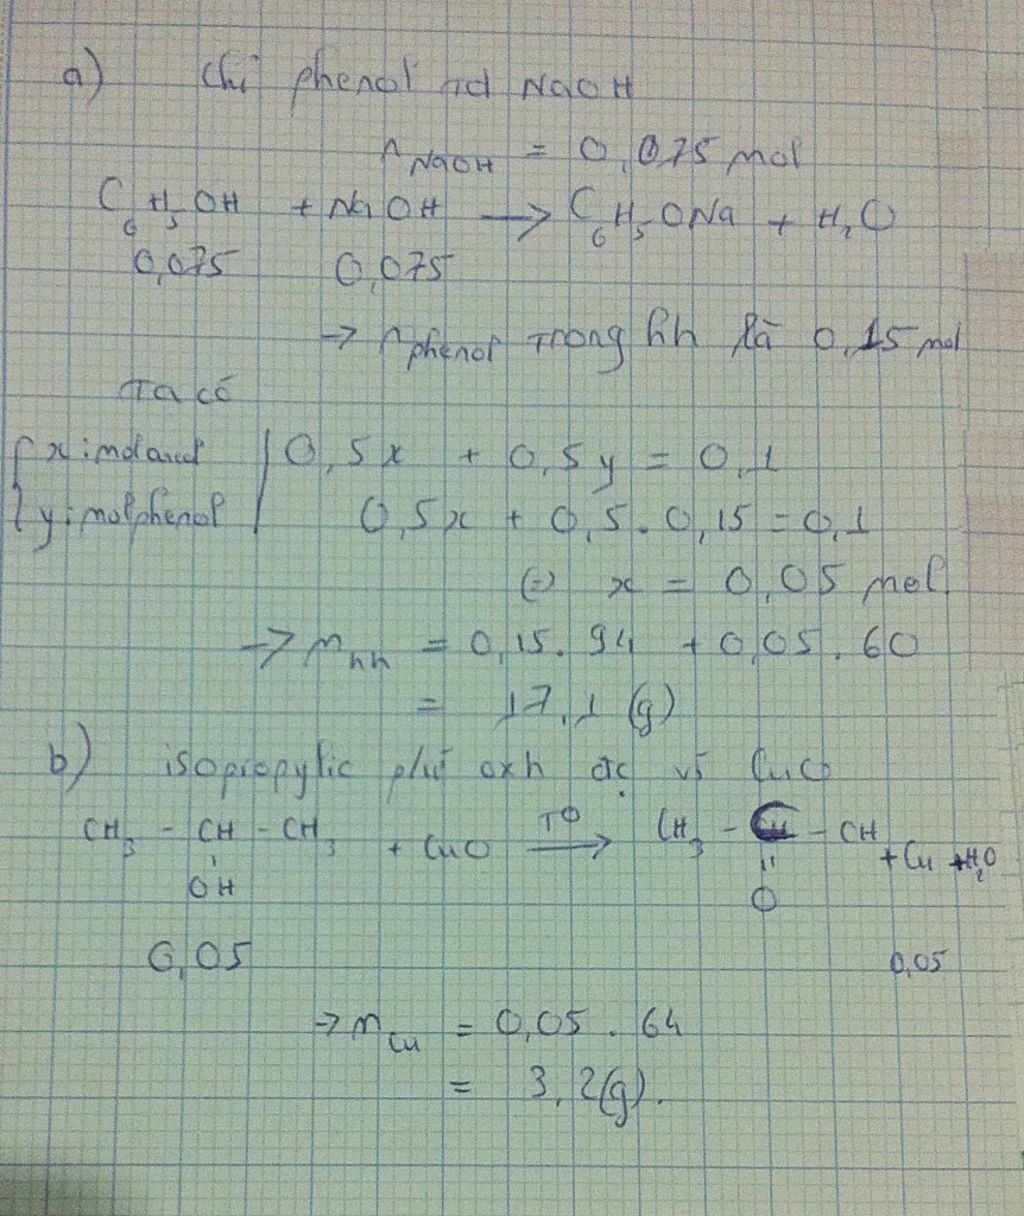 a) Chỉ phenol td NaOH
n NaOH = 0,075 mol
C6H5OH + NaOH → C6H5ONa + H2O
0,075 0,075
→ n phenol trong hh là 0,15 mol
Ta có
{ x: mol ancol | 0,5x + 0,5y = 0,1
{ y: mol phenol | 0,5x + 0,5.0,15 = 0,1
(=) x = 0,05 mol
→ m hh = 0,15.94 + 0,05.60
= 17,1 (g)
b) isopropylic oxh đc vs CuO
CH3 - CH - CH3 + CuO T° → CH3 - C - CH + Cu + H2O
OH O
0,05 0,05
→ m Cu = 0,05.64
= 3,2(g).